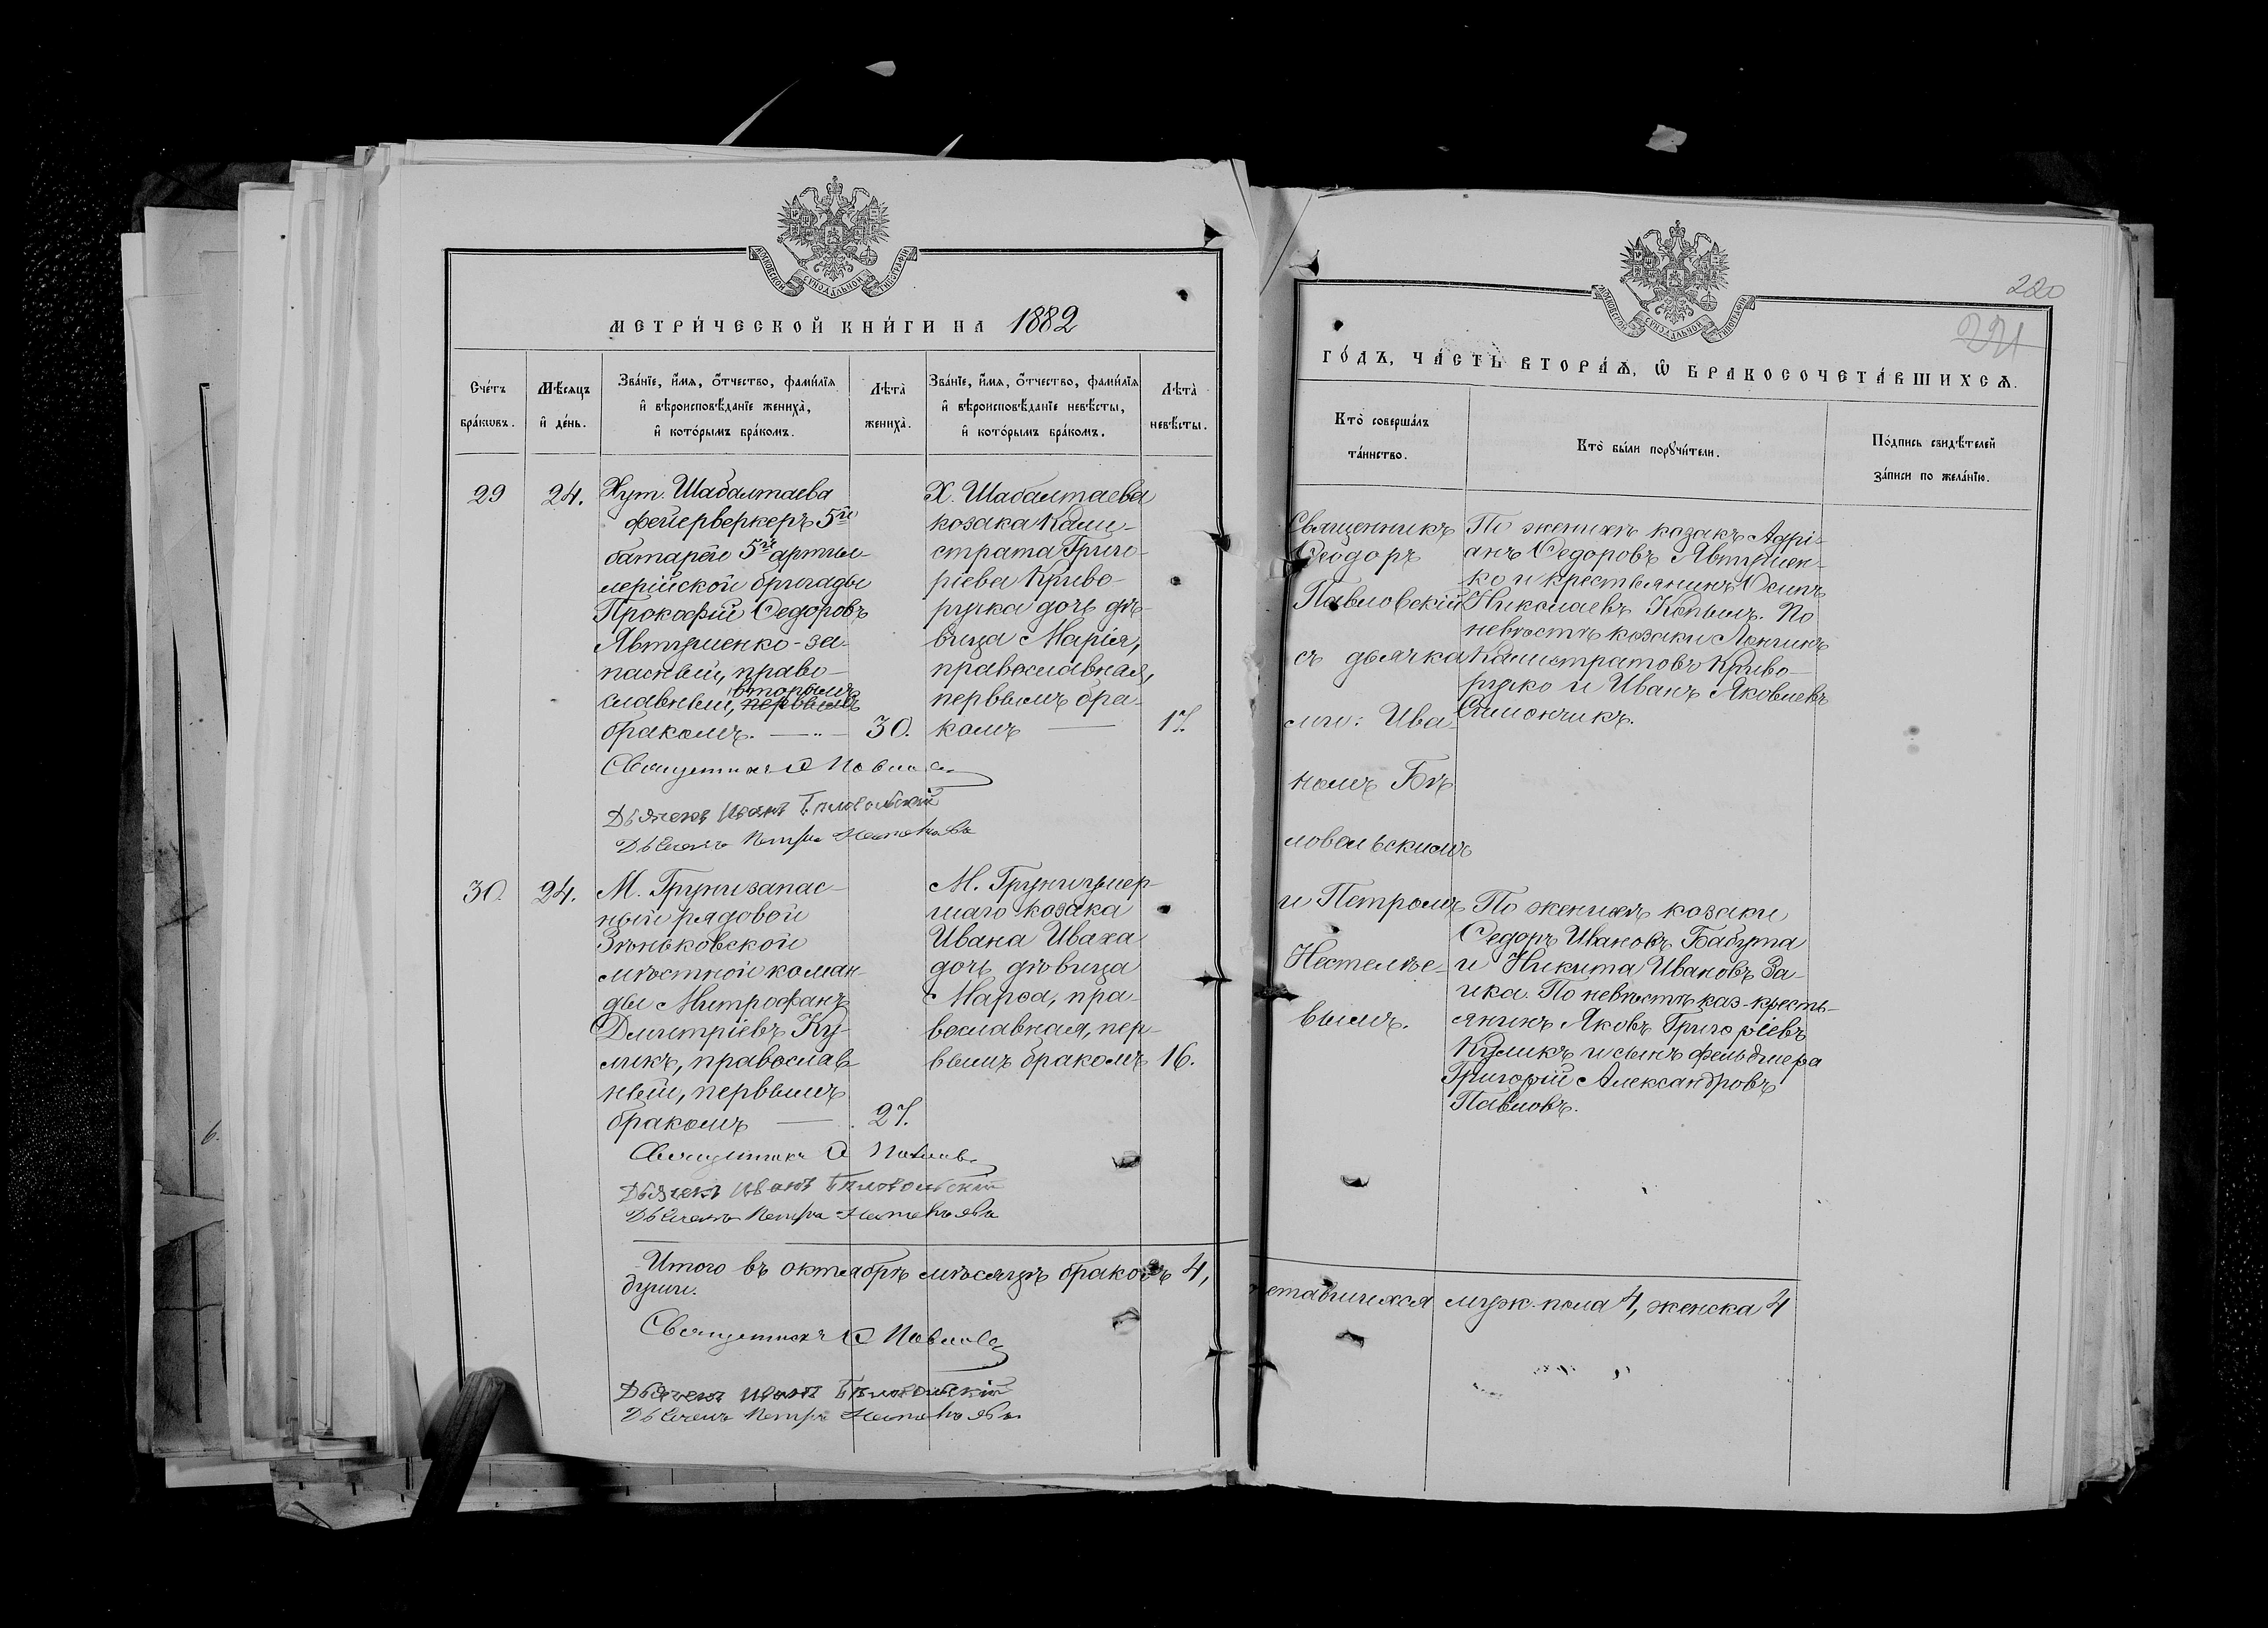 МОСКОВСКОЙ СѴНОДАЛЬНОЙ ТИПОГРАФІИ
МЕТРИ́ЧЕСКОЙ КНИ́ГИ НА 1882
Сче́тъ
бра́кѡвъ.
Мѣ́сѧцъ
и҆ де́нь.
Зва́нїе, и҆́мѧ, ѻ҆́тчество, фамі́лїѧ
и҆ вѣроисповѣ́данїе жениха̀,
и҆ кото́рымъ бра́комъ.
Лѣта̀
жениха̀.
Зва́нїе, и҆́мѧ, ѻ҆́тчество, фамі́лїѧ
и҆ вѣроисповѣ́данїе невѣ́сты,
и҆ кото́рымъ бра́комъ.
Лѣта̀
невѣ́сты.
29
24.
Хут. Шабалтаева
фейерверкеръ 5й
батареи 5й артил-
лерійской бригады
Прокофій Ѳедоровъ
Явтушенко-за-
пасный, право-
славный, вторымъ первымъ
бракомъ. —
30.
Х. Шабалтаева
козака Кали-
страта Григо-
ріева Криво-
ручка дочь дѣ-
вица Марія,
православная,
первымъ бра-
комъ —
17.
Священникъ Ѳ Павлов
Дьячекъ Иванъ Бѣловольскій
Дьячекъ Петръ
30.
24.
М. Груни запас-
ный рядовой
Зѣньковской
мѣстной коман-
ды Митрофанъ
Дмитріевъ Ку-
ликъ, православ
ный, первымъ
бракомъ —
27.
М. Груни умер-
шаго козака
Ивана Иваха
дочь дѣвица
Марѳа, пра-
вославная, пер-
вымъ бракомъ
16.
Священникъ Ѳ Павлов
Дьячекъ Иванъ Бѣловольскій
Дьячекъ Петръ
Итого въ октябрѣ мѣсяцѣ браковъ 4,
Священникъ Ѳ Павлов
Дьячекъ Иванъ Бѣловольскій
Дьячекъ Петръ
220
221
МОСКОВСКОЙ СѴНОДАЛЬНОЙ ТИПОГРАФІИ
ГО́ДЪ, ЧА́СТЬ ВТОРА́Ѧ, Ѡ҆ БРАКОСОЧЕТА́ВШИХСѦ.
Кто̀ соверша́лъ
та́инство.
Кто̀ бы́ли порꙋчи́тели.
По́дпись свидѣ́телей
за́писи по жела́нїю.
Священникъ
Ѳеодоръ
Павловскій
съ дьячка
ми: Ива-
номъ Бѣ
ловольскимъ
и Петромъ
Нестелѣе-
вымъ.
По женихѣ козакъ Адрі-
анъ Ѳедоровъ Явтушен-
ко и крестьянинъ Осипъ
Николаевъ Копылъ. По
невѣстѣ козаки Лонгинъ
Калистратовъ Криво-
ручко и Иванъ Яковлевъ
Симончикъ.
По женихѣ козаки
Ѳедоръ Ивановъ Бабута
и Никита Ивановъ За-
ика. По невѣстѣ каз. кресть-
янинъ Яковъ Григоріевъ
Куликъ и сынъ фельдшера
Григорій Александровъ
Павловъ.
етавшихся муж. пола 4, женска 4